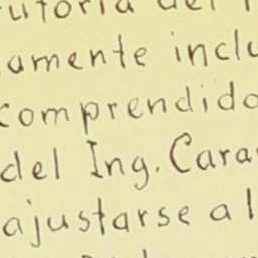 utoria del
amente inclu
comprendido
del Ing. Cara
ajustarse al